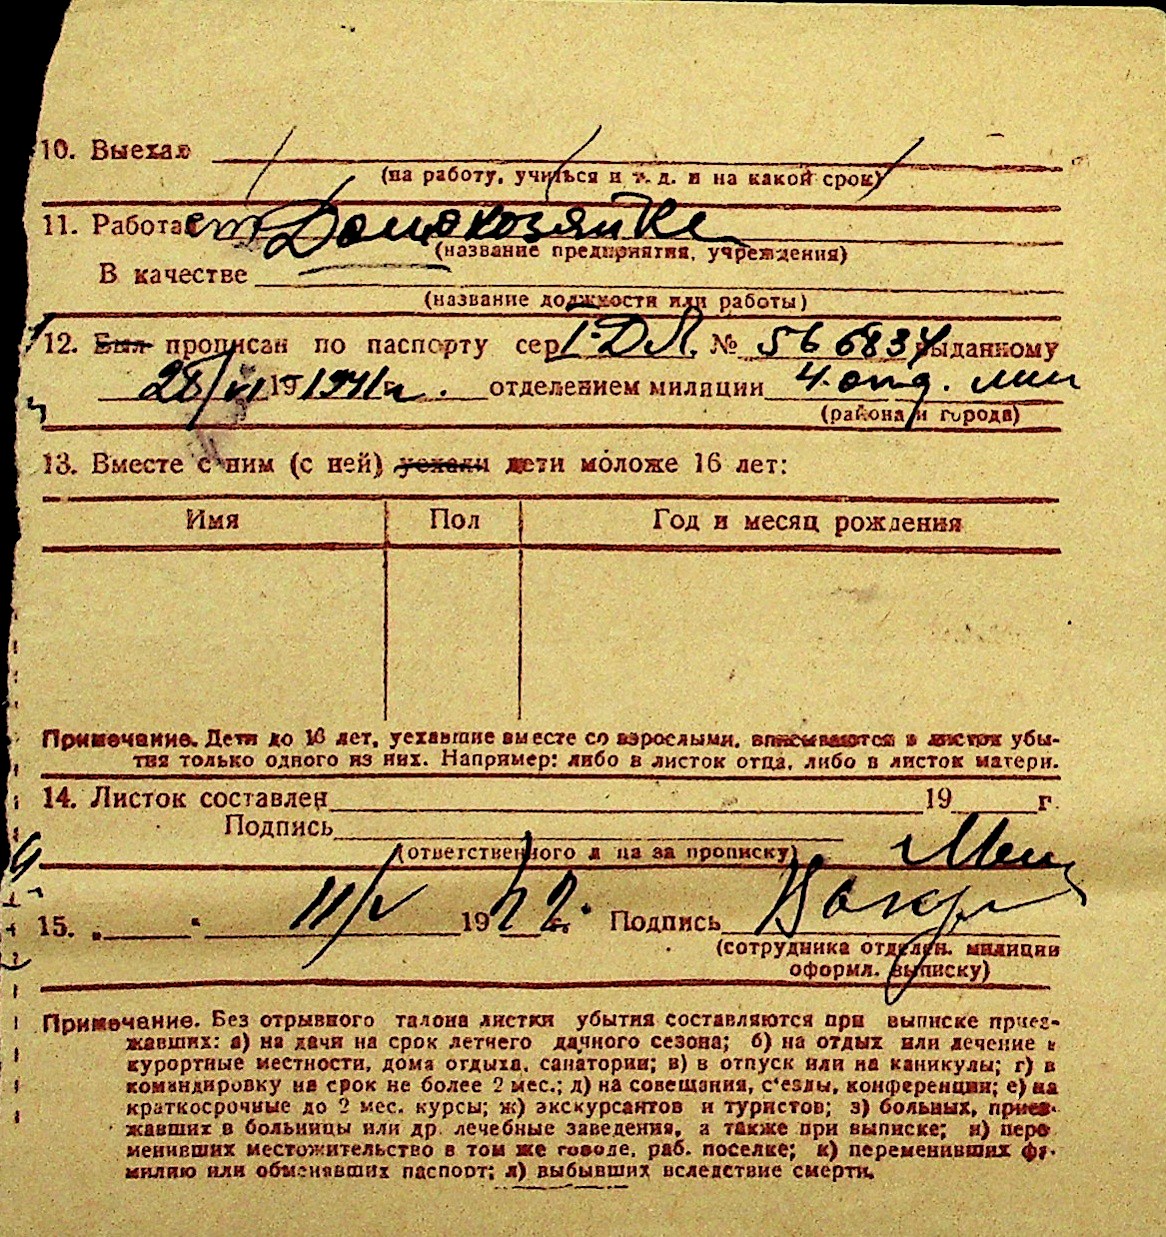 10. Выехал
(на работу, учиться и т. д. и на какой срок)
11. Работает Домохозяйка
(название предприятия, учреждения)
В качестве
(название должности или работы)
12. Был прописан по паспорту сер I-ДЛ. № 566834 выданному
28/VI 19 1941 г. отделением милиции 4. отд. мил
(района и города)
13. Вместе с ним (с ней) уехали дети моложе 16 лет:
Имя Пол Год и месяц рождения
Примечание. Дети до 16 лет, уехавшие вместе со взрослыми, вписываются в листки убы-
тия только одного из них. Например: либо в листок отца, либо в листок матери.
14. Листок составлен 19 г.
Подпись
(ответственного л ца за прописку)
15. „ " 11/V 1942 г. Подпись
(сотрудника отделен. милиции
оформл. выписку)
Примечание. Без отрывного талона листки убытия составляются при выписке приез-
жавших: а) на дачи на срок летнего дачного сезона; б) на отдых или лечение в
курортные местности, дома отдыха, санатории; в) в отпуск или на каникулы; г) в
командировку на срок не более 2 мес.; д) на совещания, с'езды, конференции; е) на
краткосрочные до 2 мес. курсы; ж) экскурсантов и туристов; з) больных, приез-
жавших в больницы или др. лечебные заведения, а также при выписке; и) пере
менивших местожительство в том же городе, раб. поселке; к) переменивших фа-
милию или обменявших паспорт; л) выбывших вследствие смерти.